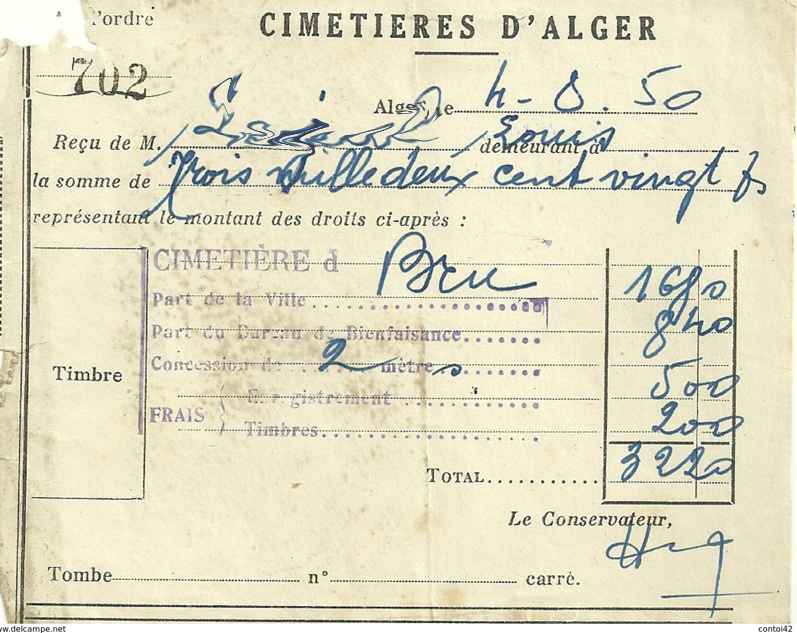 l'ordre
CIMETIERES D'ALGER
702
Alger, le 4-8.50
Reçu de M. Louis demeurant à
la somme de Trois mille deux cent vingt fs
représentant le montant des droits ci-après :
CIMETIÈRE d
Part de la Ville 1680
Part du Bureau de Bienfaisance 840
Concession de 2 mètres
Timbre
Enregistrement 500
FRAIS
Timbres 200
TOTAL 3220
Le Conservateur,
Tombe n° carré.
contoi42